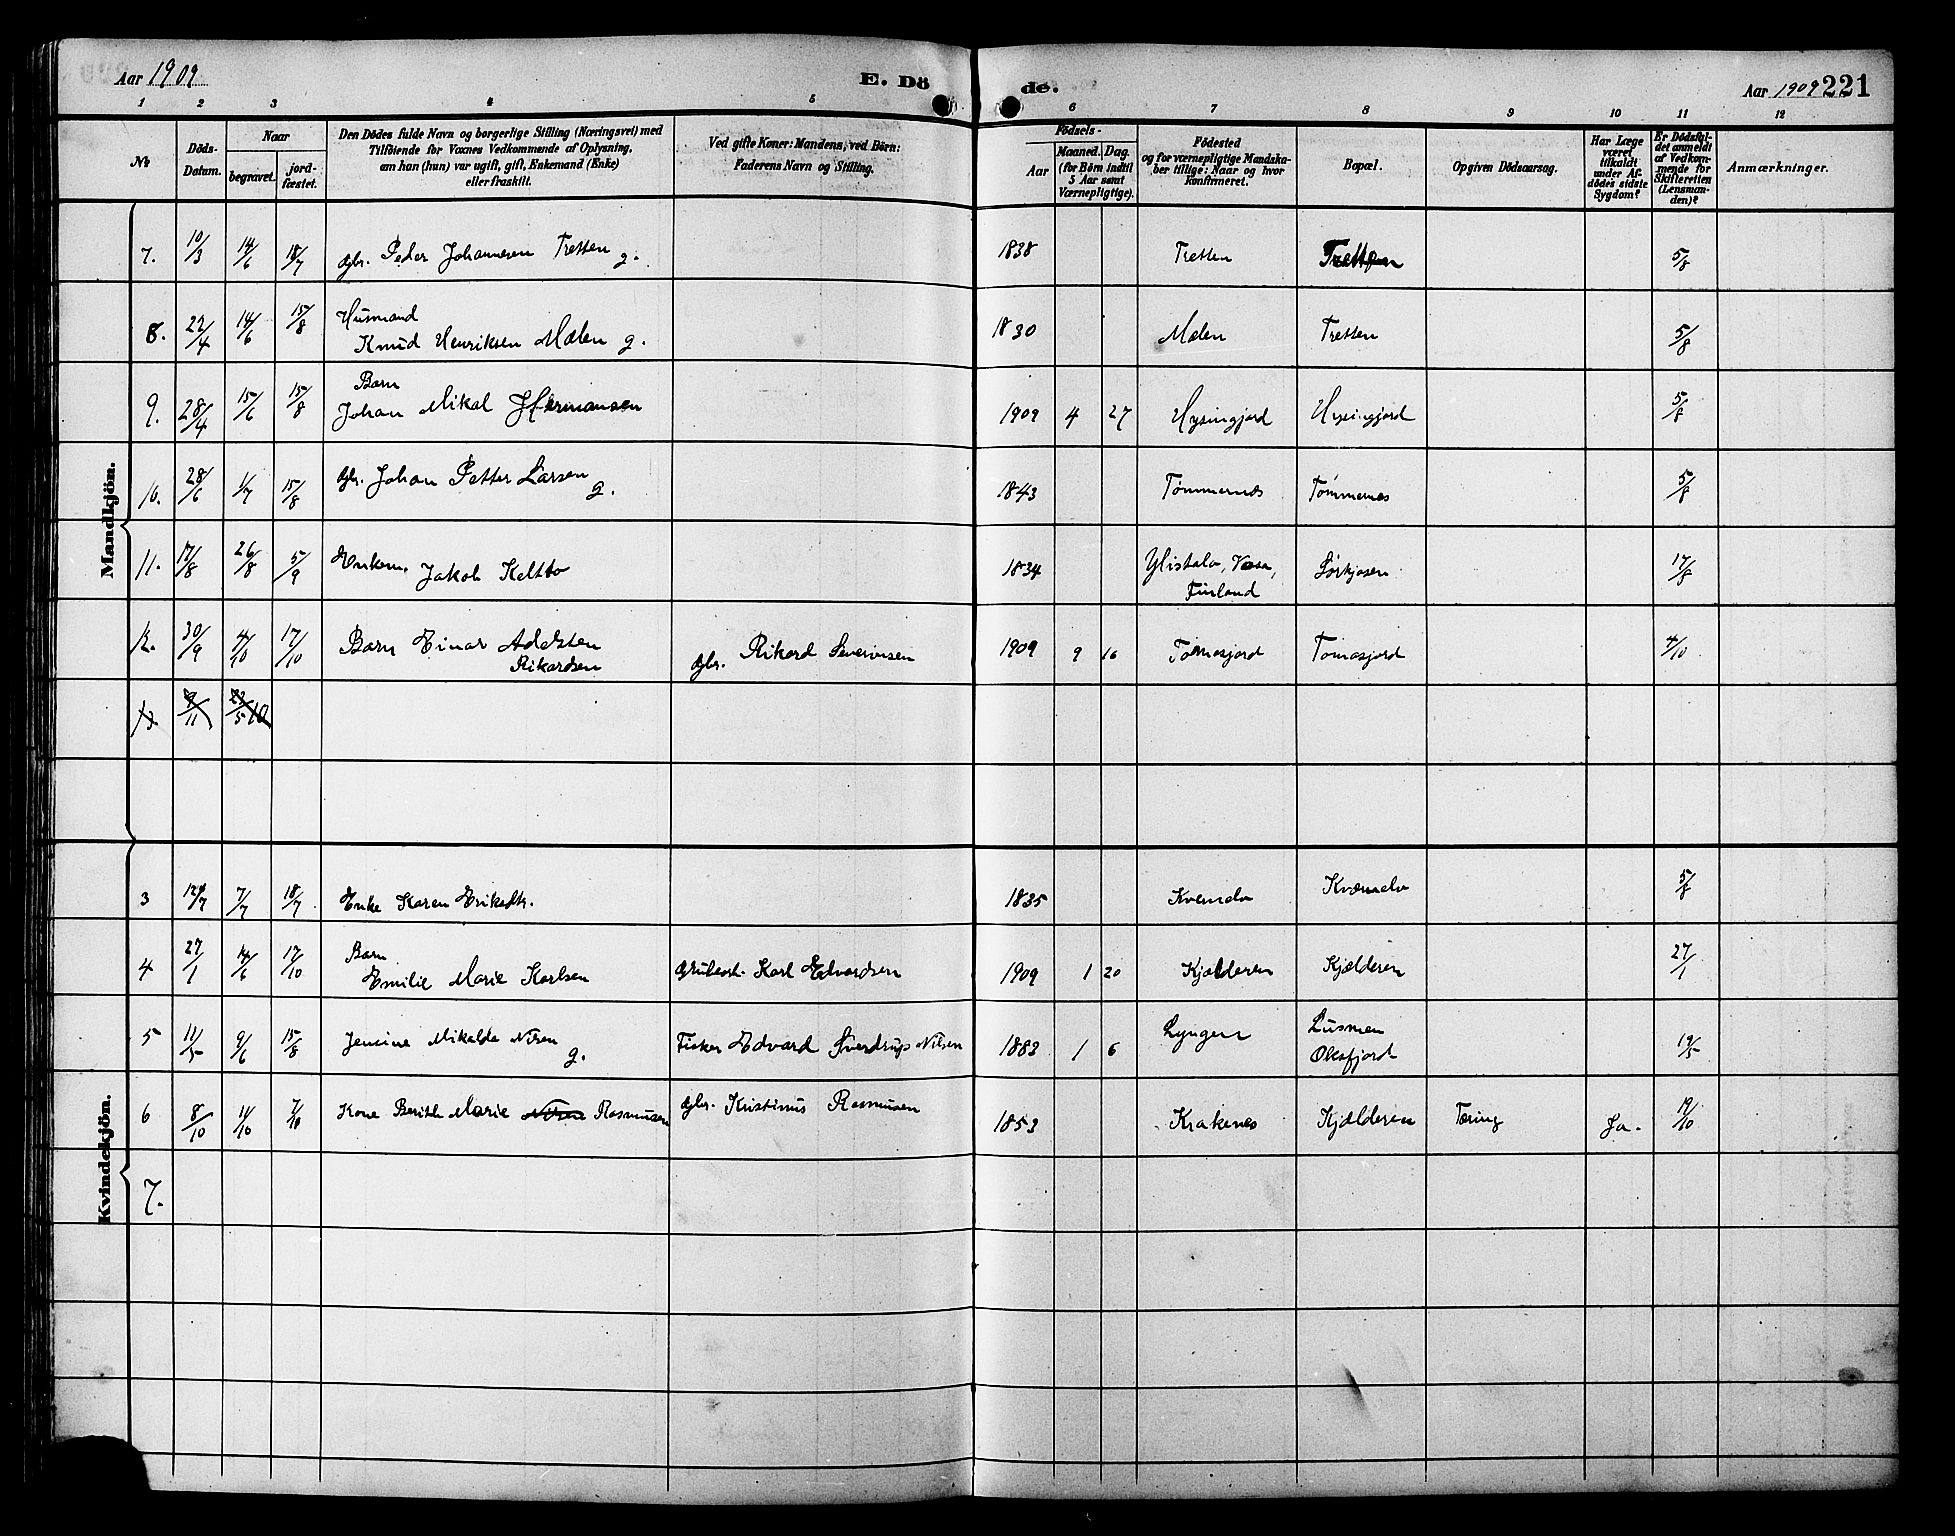 Aar 1909
E. Dö de.
Aar 1909 221
1 2 3 4 5 6 7 8 9 10 11 12
No
Döds-
Datum.
Naar
begravet.
jord-
fæstet.
Den Dödes fulde Navn og borgerlige Stilling (Næringsvei) med
Tilföiende for Voxnes Vedkommende af Oplysning,
om han (hun) var ugift, gift, Enkemand (Enke)
eller fraskilt.
Ved gifte Koner: Mandens, ved Börn:
Faderens Navn og Stilling.
Födsels-
Aar
Maaned. Dag.
(for Börn indtil
5 Aar samt
Værnepligtige).
Födested
og for værnepligtige Mandska-
ber tillige: Naar og hvor
konfirmeret.
Bopæl.
Opgiven Dödsaarsag.
Har Læge
været
tilkaldt
under Af-
dödes sidste
Sygdom?
Er Dödsfal-
det anmeldt
af Vedkom-
mende for
Skifteretten
(Lensman-
den)?
Anmærkninger.
Mandkjön.
7. 10/3 14/6 18/7 gbr. Peder Johannesen Tretten g. 1838 Tretten Tretten 5/8
8. 22/4 14/6 15/8 Husmand
Knud Henriksen Mælen g. 1830 Mælen Tretten 5/8
9. 28/4 15/6 15/8 Barn
Johan Mikal Hermansen 1909 4 27 Hysingjord Hysingjord 5/8
10. 28/6 1/7 15/8 gbr. Johan Petter Larsen g. 1843 Tømmernes Tømmernes 5/8
11. 17/8 26/8 5/9 Enkem. Jakob Keltto 1834 Ylistalo, Vasa,
Finland Sørkjosen 17/8
12. 30/9 4/10 17/10 Barn Einar Adelsten
Rikardsen gbr. Rikard Severinsen 1909 9 16 Tomasjord Tomasjord 4/10
13
Kvindekjön.
3 7/7 18/7 Enke Karen Eriksdtr. 1835 Kvændv 5/8
4 27/1 14/6 17/10 Barn
Emilie Marie Karlsen Karl Edvardsen 1909 1 20 Kjælderen Kjælderen 27/1
5 11/5 9/6 15/8 Jensine Mikalda Nilsen g. Fisker Edvard Sverdrup Nilsen 1883 1 6 Lyngen
Oksfjord 19/5
6 8/10 11/10 7/10 Kone Berith Marie Nilsen Rasmussen gbr. Kristinus Rasmussen 1853 Krakenes Kjælderen Tæring Ja. 19/10
7.